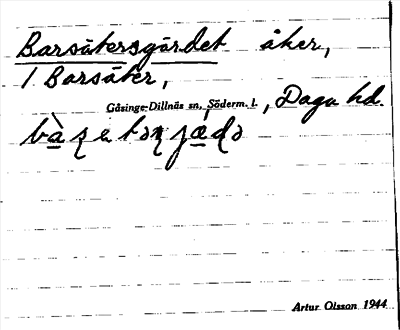 Barsätersgärdet åker,
1 Barsäter,
Gåsinge-Dillnäs sn, Söderm. l., Daga hd.
Artur Olsson 1944